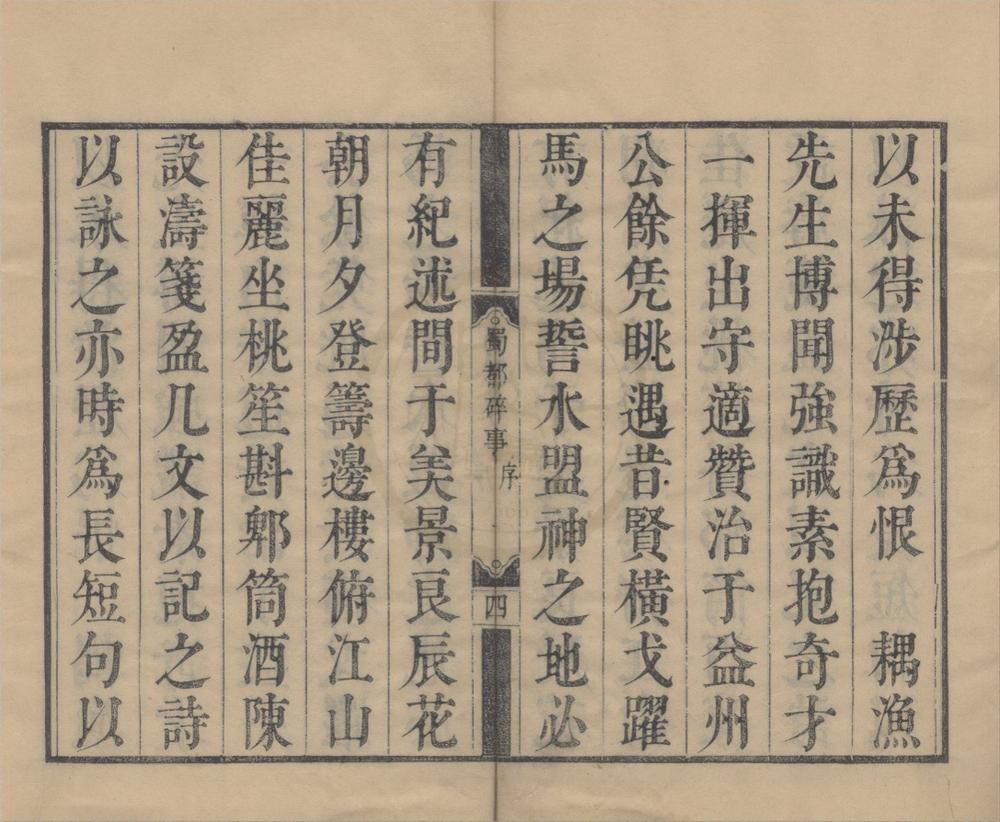 以未得涉歷爲恨　耦漁
先生博聞強識素抱奇才
一揮出守適贊治于益州
公餘凭眺遇昔賢橫戈躍
馬之場誓水盟神之地必
蜀都碎事
序
四
有紀述間于美景良辰花
朝月夕登籌邊樓俯江山
佳麗坐桃笙斟郫筒酒陳
設濤箋盈几文以記之詩
以詠之亦時爲長短句以